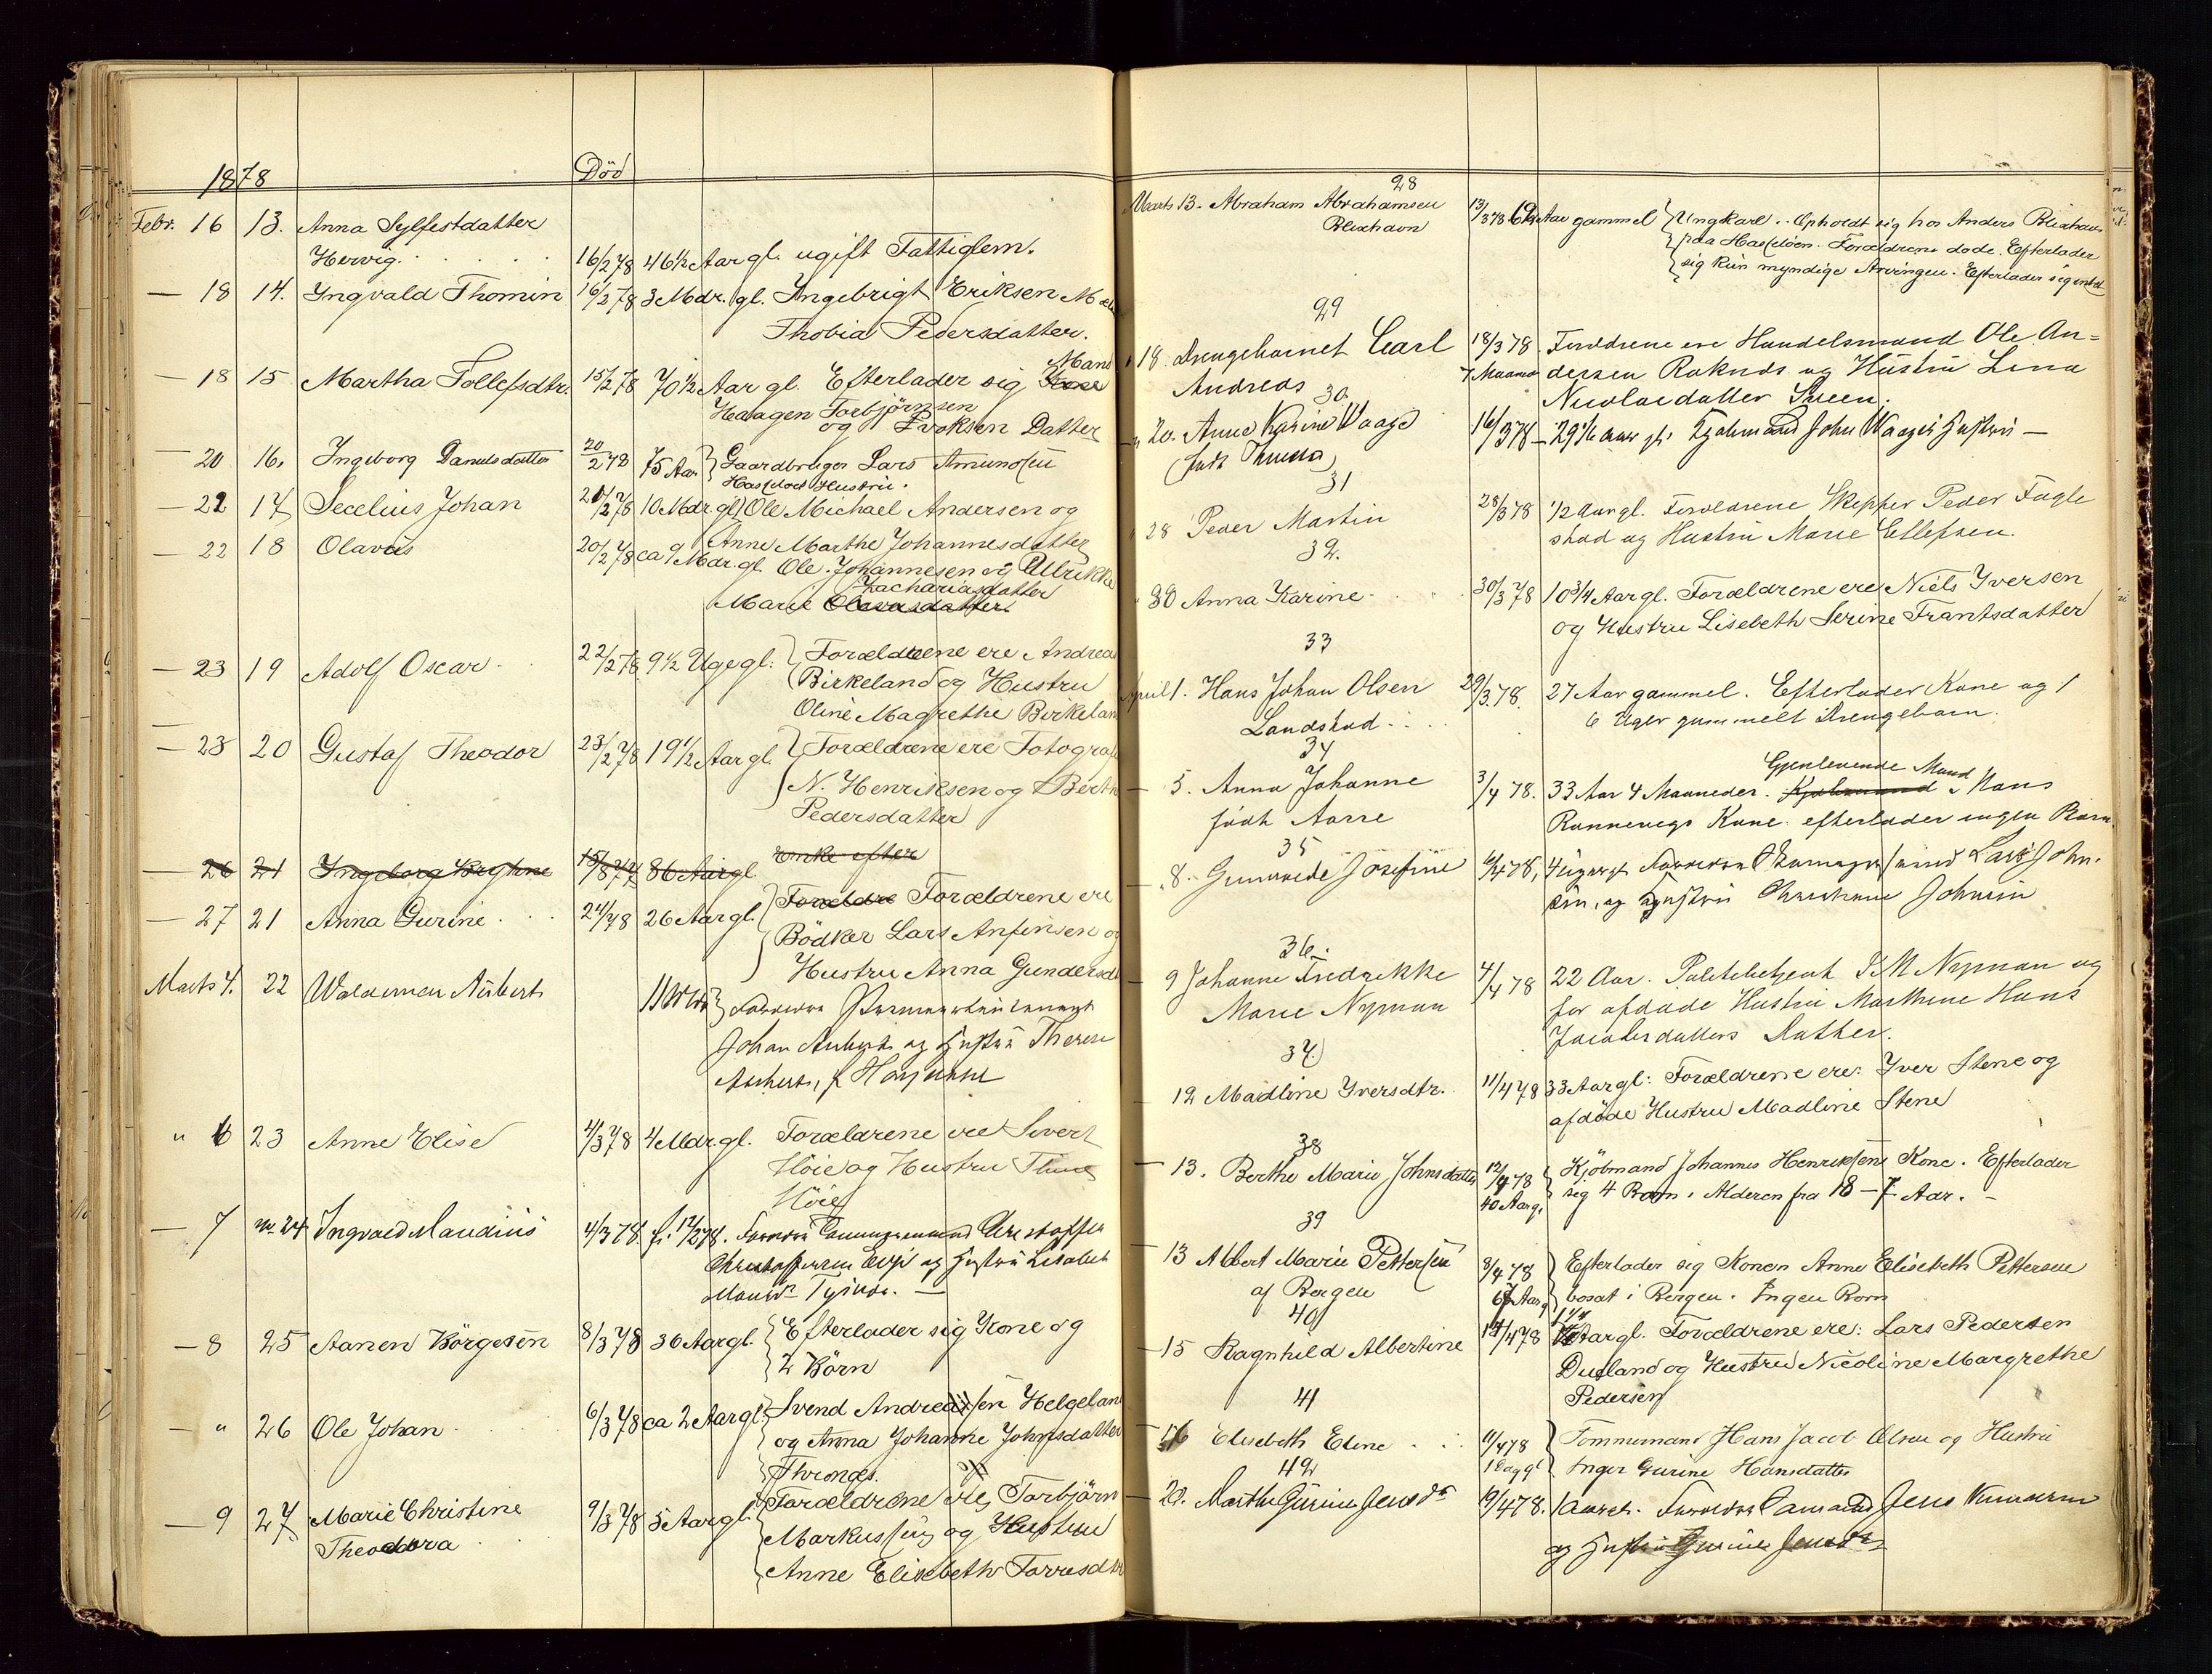 1878 Död
Febr. 16 13. Anna Sylfestdatter
Hervig. 16/2 78 46½ Aar gl. ugift Fattiglem.
— 18 14. Yngvald Thomin 16/2 78 3 Mdr. gl. Ingebrigt Eriksen
Thobia Pedersdatter.
Mand
— 18 15 Martha Tollefsdtr. 15/2 78 70½ Aar gl. Efterlader sig Kone
Haagen Torbjörnsen
og Voksen Datter
— 20 16. Ingeborg Danielsdatter 20/2 78 75 Aar Gaardbruger Lars Amundsen
Hasselöes Hustru.
— 22 17 Secelius Johan 21/2 78 10 Mdr. gl. Ole Michael Andersen og
Anne Marthe Johannesdatter
— 22 18 Olavus 20/2 78 ca 9 Mdr. gl. Ole Johannesen og Ulrikke
Zachariasdatter
Marie Olavasdatter
— 23 19 Adolf Oscar 22/2 78 9½ Uge gl. Forældrene ere Andreas
Birkeland og Hustru
Oline Magrethe Birkeland
— 23 20 Gustaf Theodor 23/2 78 19½ Aar gl. Forældrene ere Fotograf
N. Henriksen og Berth
Pedersdatter
— 26 21 Ingeborg 86 Aar gl. Enke efter
— 27 21 Anna Gurine 24/78 26 Aar gl. Forældre Forældrene ere
Bödker Lars Anfinsen og
Hustru Anna Gundersd
Marts 4. 22 Waldemar Aubert
Johan Aubert og Hustru Therese
Aubert, f.
" 6 23 Anne Elise 4/3 78 4 Mdr. gl. Forældrene ere Sivert
Höie og Hustru
Höie
— 7 24 Ingvald Maudius 4/3 78. f. 12/2 78. Christoffer
Christoffersen og Hustru Lisabeth
— 8 25 Aanen Börgesen 8/3 78 36 Aar gl. Efterlader sig Kone og
2 Börn
— " 26 Ole Johan 6/3 78 ca 2 Aar gl. Svend Andreassen Helgeland
og Anna Johanne Johnsdatter
Thronæs.
— 9 27 Marie Christine 9/3 78 5 Aar gl. Forældrene ere Torbjörn
Theodora Markussen og Hustru
Anne Elisebeth Torresdtr
28
Marts 13. Abraham Abrahamsen 13/3 78 Aar gammel Ungkarl. Opholdt sig hos Anders Blixhavn
Blixhavn paa Hasselöen. Forældrene döde. Efterlader
sig kun myndige Arvinger. Efterlader sig intet
29
" 18. Drengebarnet Carl 18/3 78 Forældrene ere Handelsmand Ole An=
Andreas 7 Maaned dersen Roknes og Hustru Lina
Nicolaidatter Sveen.
30.
" 20. Anne Karine Waage 16/3 78 — 29 Aar gl. Kjöbmand John Waages Hustru —
31
" 28 Peder Martin 28/3 78 ½ Aar gl. Forældrene Skipper Peder Fugle
stad og Hustru Marie Ellefsen.
32.
" 30 Anna Karine 30/3 78 10¾ Aar gl. Forældrene ere Niels Iversen
og Hustru Lisebeth Serine Frantsdatter
33
April 1. Hans Johan Olsen 29/3. 78. 27 Aar gammel. Efterlader Kone og 1
Landstad 6 Uger gammelt Drengebarn.
34
Gjenlevende Mand
— 5. Anna Johanne 3/4 78. 33 Aar 4 Maaneder. Kjöbmand Hans
födt Aarre Rannevigs Kone. efterlader ingen Börn.
35
— 8. Gunvede Josefine 4/4 78, 4 Uger gl. Lars John-
sen, og Hustru Johnsen
36.
— 9 Johanne Fredrekke 4/4 78 22 Aar. Politibetjent P M Nyman og
Marie Nyman for afdöde Hustru Marthine Hans
Jacobsdatters Datter.
37
— 12 Madline Iversdtr. 11/4 78 33 Aar gl: Forældrene ere: Iver Stene og
afdöde Hustru Madline Stene
38
— 13. Berthe Marie Johnsdatter 12/4 78 Kjöbmand Johannes Henriksens Kone. Efterlader
40 Aar gl. sig 4 Börn i Alderen fra 18 – 7 Aar. –
39
— 13 Albert Marie Pettersen 3/4 78 Efterlader sig Konen Anne Elisebeth Pettersen
af Bergen 67 Aar gl bosat i Bergen. Ingen Born
40
— 15 Ragnhild Albertine 14/4 78 Aar gl. Forældrene ere: Lars Pedersen
Dueland og Hustru Nicoline Margrethe
Pedersen
41
— 16 Elisebeth Eline 11/4 78 Tømmermand Hans Jacob Olsen og Hustru
1 Dag gl Inger Gurine Hansdatter
42
— 20. Marthe Gurine Jensdr 19/4 78. 1 Aar gl. Jens Knudsen
og Hustru Gurine Jensdr